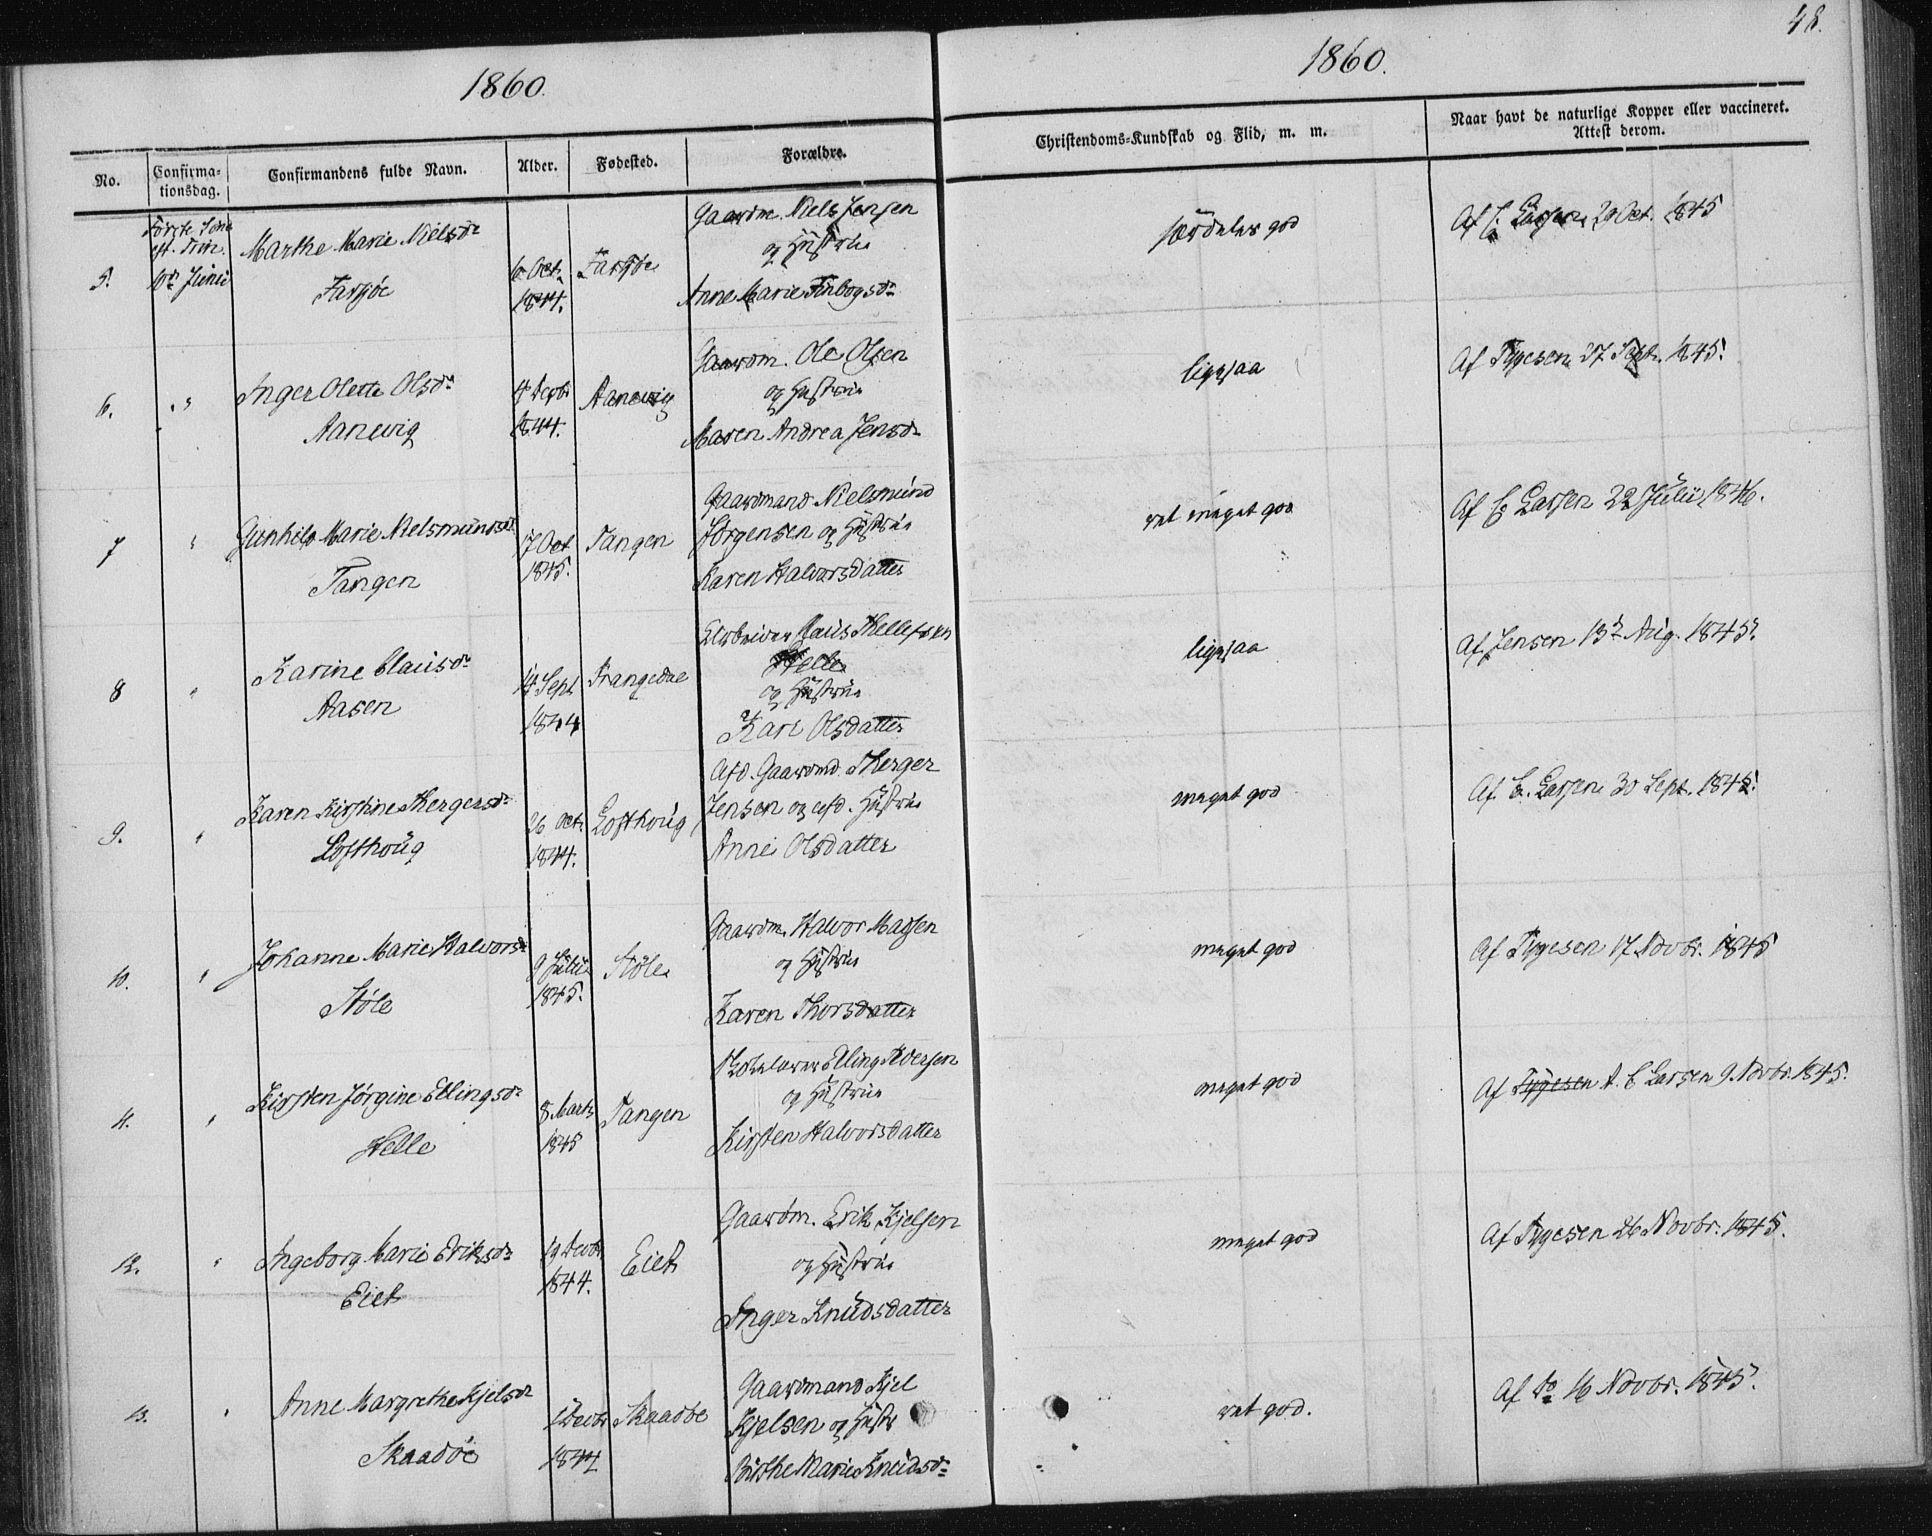 48.
1860.
1860.
No.
Confirma-
tionsdag.
Confirmandens fulde Navn.
Alder.
Fødested.
Forældre.
Christendoms-Kundskab og Flid, m. m.
Naar havt de naturlige Kopper eller vaccineret.
Attest derom.
5.
Første Sønd
eft. Trin.
10de Junii
Marthe Marie Nielsdr
Farsjøe
6 Oct.
1844.
Farsjøe
Gaardm. Niels Jensen
og Hustrue
Anne Marie Finbogsdr
særdeles god
Af C. Larsen 29 Oct. 1845
6.
"
Inger Olette Olsdr
Aanevig
4 Decbr
1844.
Aanevig
Gaardm. Ole Olsen
og Hustrue
Maren Andrea Jensdr
ligesaa
Af Tygesen 27 Sept. 1845.
7
"
Gunhild Marie Nielsmundsdr
Tangen
17 Oct
1845.
Tangen
Gaardmand Nielsmund
Jørgensen og Hustrue
Karen Halvorsdatter
ret meget god
Af C. Larsen 22 Julii 1846.
8
"
Karine Clausdr
Aasen
14 Sept
1844
Drangedal
Arbeider Claus Kellefsen
Helle
og Hustrue
Kari Olsdatter
ligesaa
Af Jensen 13de Aug. 1845.
9.
"
Karen Kirstine Thergersdr
Lofthoug
26 Oct.
1844.
Lofthoug
Afd. Gaardmd. Therger
Jensen og afd. Hustrue
Anne Olsdatter
meget god
Af C. Larsen 30 Sept. 1845.
10.
"
Johanne Marie Halvorsdr
Støle
9 Julii
1845.
Støle
Gaardm. Halvor Madsen
og Hustrue
Karen Thorsdatter
meget god
Af Tygesen 17 Novbr. 1845
11.
"
Kirsten Jørgine Ellingsdr
Helle
8 Marts
1845
Tangen
Skolelærer Elling Iversen
og Hustrue
Kirsten Halvorsdatter
meget god
Af Tygesen A. C Larsen 9 Novbr. 1845.
12.
"
Ingeborg Marie Eriksdr
Eiet
19 Decbr
1844.
Eiet
Gaardm. Erik Kjelsen
og Hustrue
Inger Knudsdatter
meget god
Af Tygesen 26 Novbr. 1845.
13.
"
Anne Margrethe Kjelsdr
Skaadøe
1 Decbr
1844
Skaadøe
Gaardmand Kjel
Kjelsen og Hustr
Birthe Marie Knudsdr
ret god.
Af Do 16 Novbr. 1845.